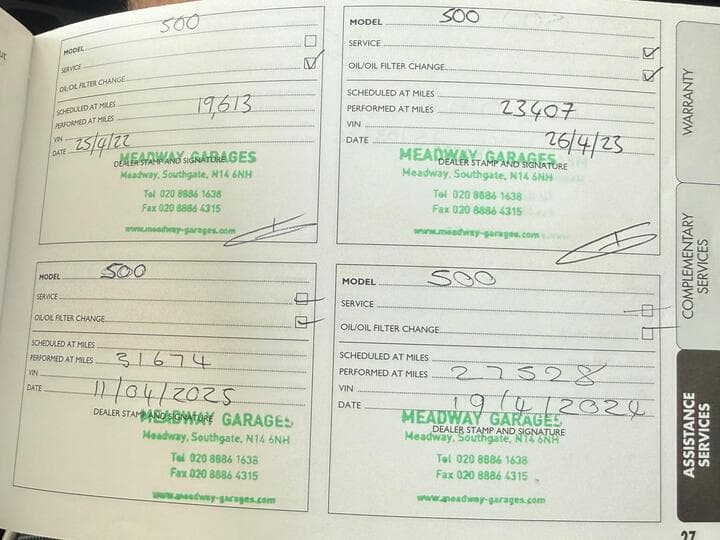 MODEL 500
SERVICE
OIL/OIL FILTER CHANGE
SCHEDULED AT MILES
PERFORMED AT MILES 19,613
VIN
DATE 25/4/22
MEADWAY GARAGES
DEALER STAMP AND SIGNATURE
Meadway, Southgate, N14 6NH
Tel 020 8886 1638
Fax 020 8886 4315
www.meadway-garages.com
MODEL 500
SERVICE
OIL/OIL FILTER CHANGE
SCHEDULED AT MILES
PERFORMED AT MILES 23407
VIN
DATE 26/4/23
MEADWAY GARAGES
DEALER STAMP AND SIGNATURE
Meadway, Southgate, N14 6NH
Tel 020 8886 1638
Fax 020 8886 4315
www.meadway-garages.com
MODEL 500
SERVICE
OIL/OIL FILTER CHANGE
SCHEDULED AT MILES
PERFORMED AT MILES 31674
VIN
DATE 11/04/2025
DEALER STAMP AND SIGNATURE
MEADWAY GARAGES
Meadway, Southgate, N14 6NH
Tel 020 8886 1638
Fax 020 8886 4315
www.meadway-garages.com
MODEL 500
SERVICE
OIL/OIL FILTER CHANGE
SCHEDULED AT MILES
PERFORMED AT MILES 27528
VIN
DATE 19/4/2024
MEADWAY GARAGES
DEALER STAMP AND SIGNATURE
Meadway, Southgate, N14 6NH
Tel 020 8886 1638
Fax 020 8886 4315
www.meadway-garages.com
WARRANTY
COMPLEMENTARY
SERVICES
ASSISTANCE
SERVICES
27